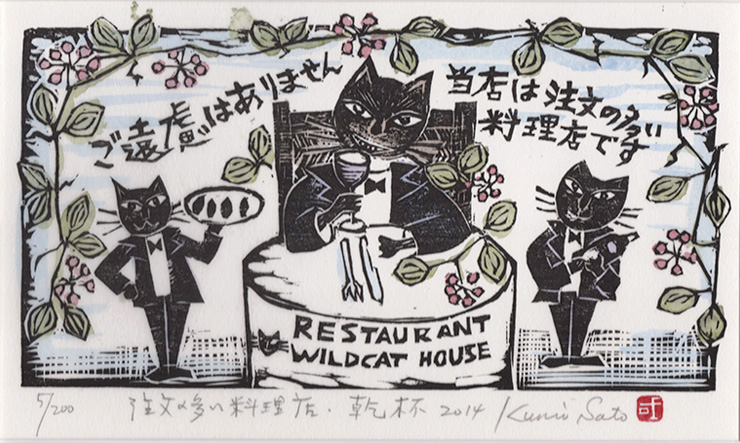 ご遠慮はありません
当店は注文の多い
料理店です
RESTAURANT
WILDCAT HOUSE
5/200 注文の多い料理店・乾杯 2014 Kunio Sato